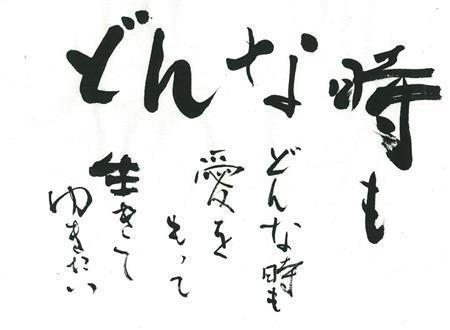 どんな時も
どんな時も
愛を
もって
生きて
ゆきたい